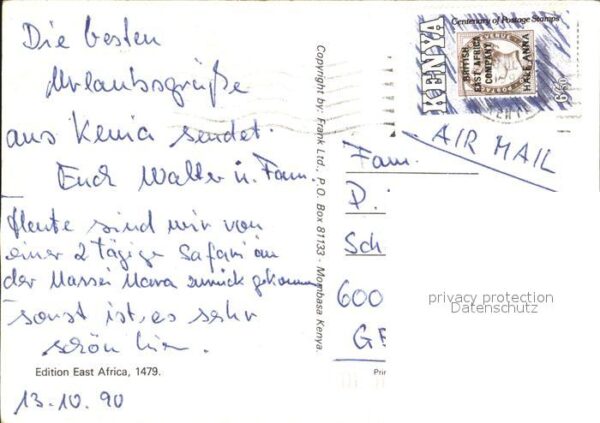 Die besten
Urlaubsgrüße
aus Kenia sendet.
Euch Walter u. Fam.
Heute sind wir von
einer 2 tägige Safari an
der Massei Mara zurück gekommen
sonst ist es sehr
schön hier.
Edition East Africa, 1479.
13.10.90
Copyright by: Frank Ltd., P.O. Box 81133 - Mombasa Kenya.
KENYA
Centenary of Postage Stamps
BRITISH
EAST AFRICA
COMPANY
HALF ANNA
AIR MAIL
Fam.
D.
Sch
600
privacy protection
Datenschutz
Prin